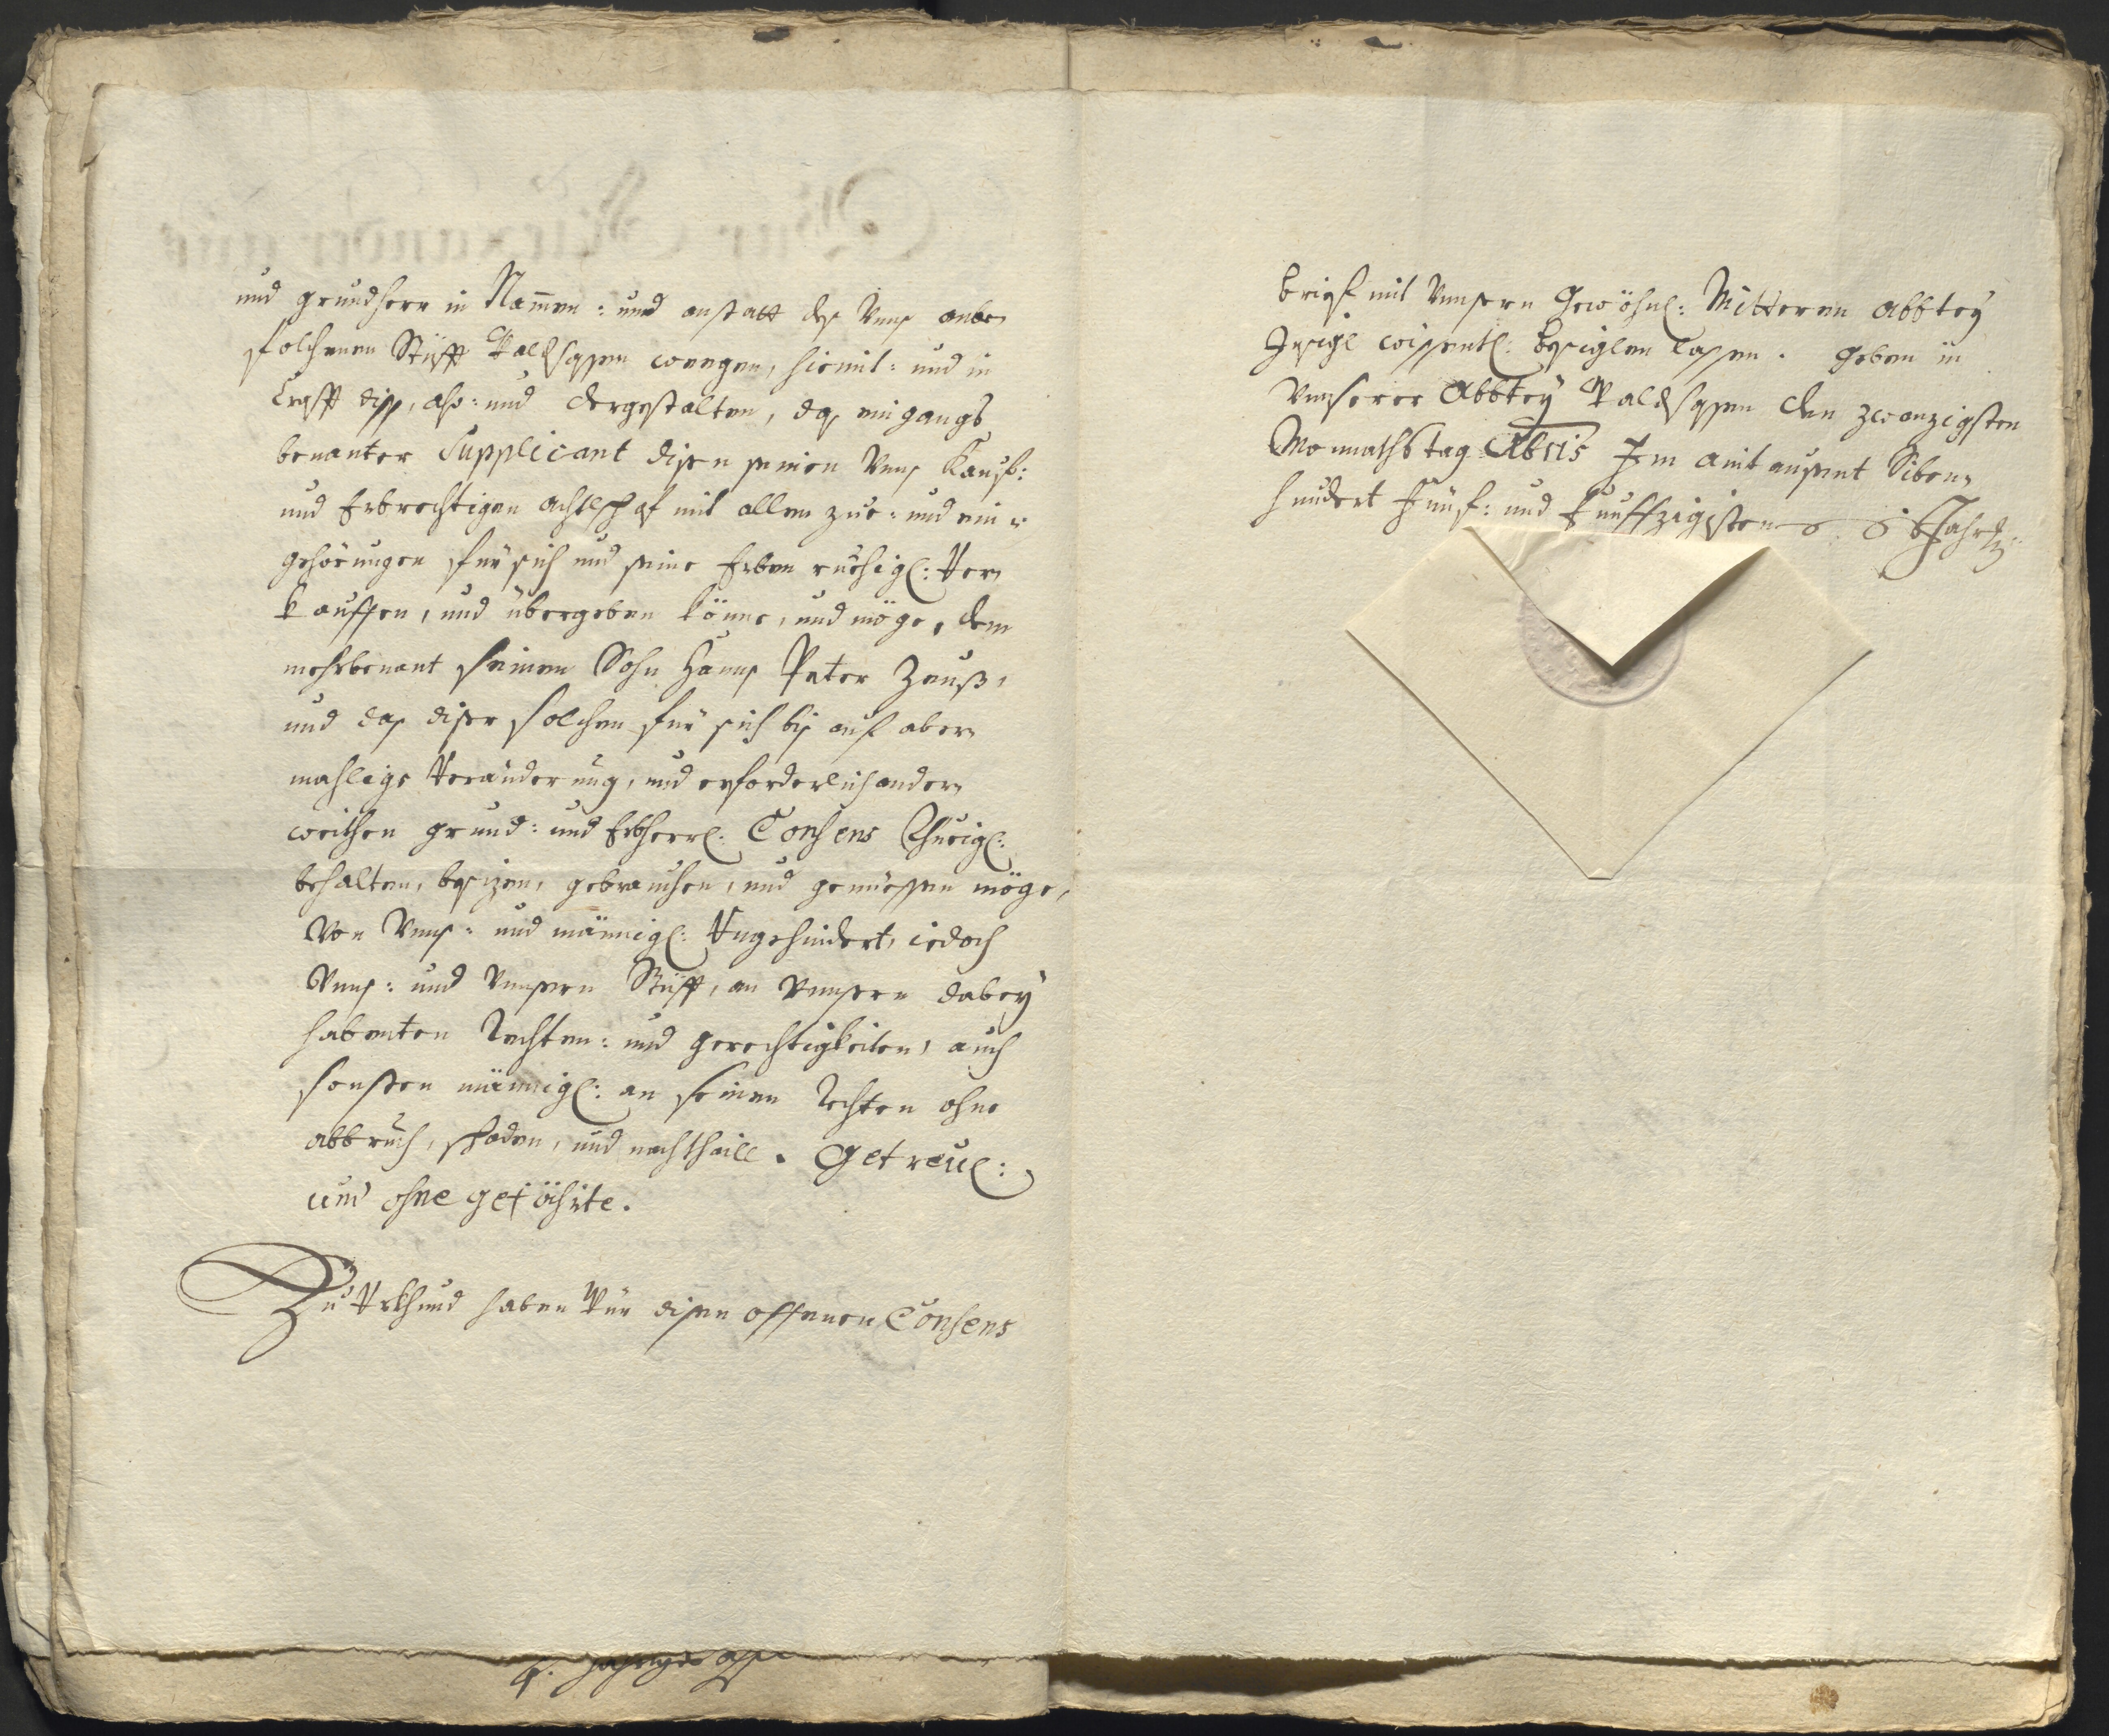 und grundherr in Nam̄en: und anstatt des Unns anbe-
folchenen Stüfft Waldsassen weegen, hiemit: und in
Crafft diss, also: und dergestalten, das eingangs
benanter Supplicant disen seinen Unns Kauf:
und Erbrechtigen achtlhof mit allen zue: und ein-
gehörungen für sich und seine Erben ruehigl: Ver-
kauffen, und übergeben könne, und möge, dem
mehrbenant seinen Sohn Hanns Peter Zeuß,
und das diser solchen für sich bis auf aber-
mahlige Veränderung, und erforderlich ander-
weithen grund: und Erbherrl: Consens Rhueigl:
behalten, besizen, gebrauchen, und genüessen möge,
Von Unns: und männigl: Ungehindert, iedoch
Unns: und Unnsern Stüfft, an Unnsern dabey
habenten Rechten: und gerechtigkeiten, auch
sonsten männigl: an seinen Rechten ohne
abbruch, schaden, und nachtheill. Getreul:
und ohne gefährte.
Zu Urkhund haben Wür disen offenen Consens
brief mit Unnsern Gewöhnl: Mitteren Abbtey
Insigl wissentl: besiglen lassen. Geben in
Unnserer Abbtey Waldsassen den zwanzigsten
Monnathstag Abris Im aintausent Siben-
hundert Fünf: und Fünffzigisten Jahr